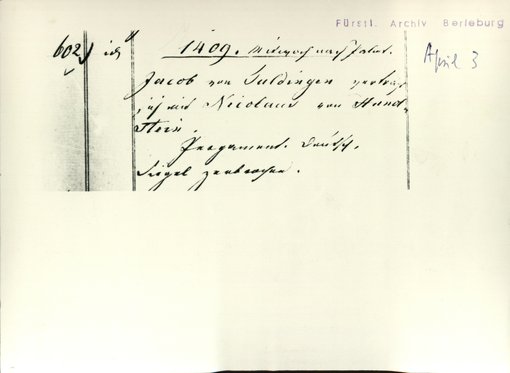 Fürstl. Archiv Berleburg
602) 1409. Mittwoch nach Palm. April 3
Jacob von Guldingen vertrag
sich mit Nicolaus von Hund
Stein.
Pergament. Deutsch.
Siegel zerbrochen.